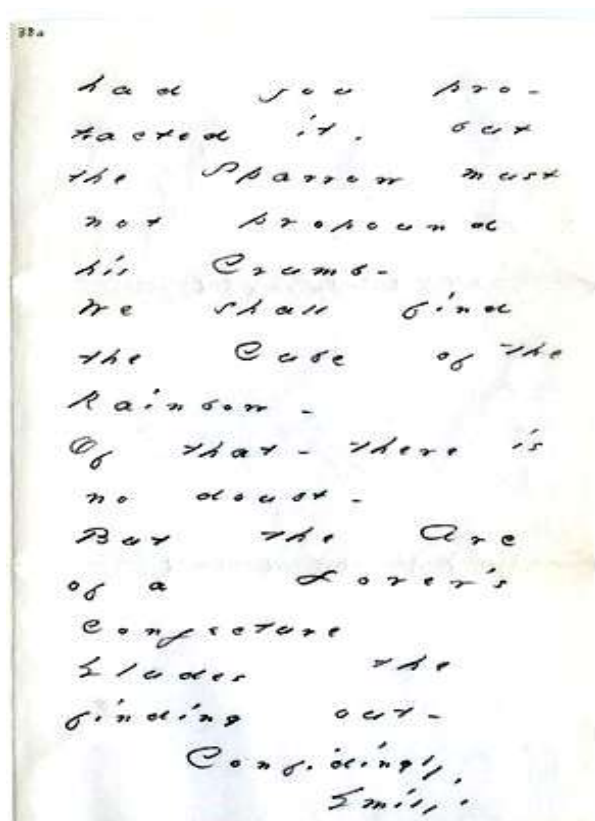 38a
had you pro-
tacted it, but
the Sparrow must
not propound
his Crumb-
We shall find
the Cube of the
Rainbow -
Of that - there is
no doubt -
But the Arc
of a Lover's
Conjecture
Eludes the
finding out -
Confidingly,
Emily.